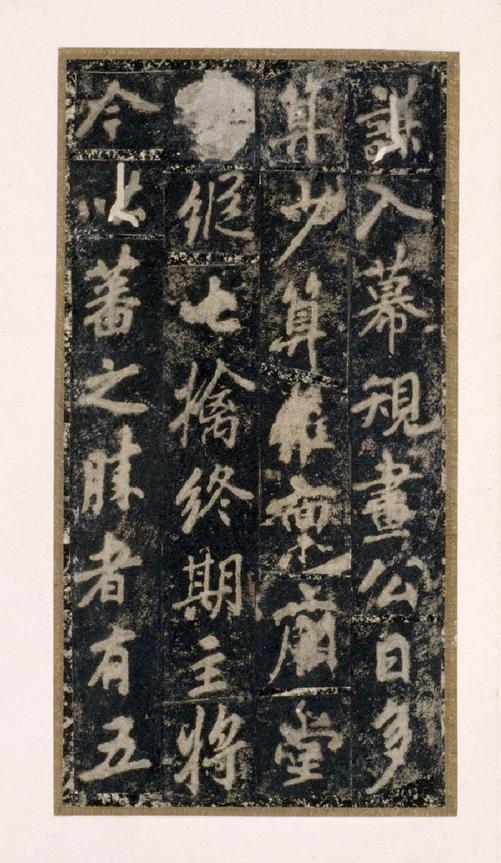 謀入幕規畫公曰多
算少算雖稟廟堂
縱七擒終期主將
今吐蕃之勝者有五